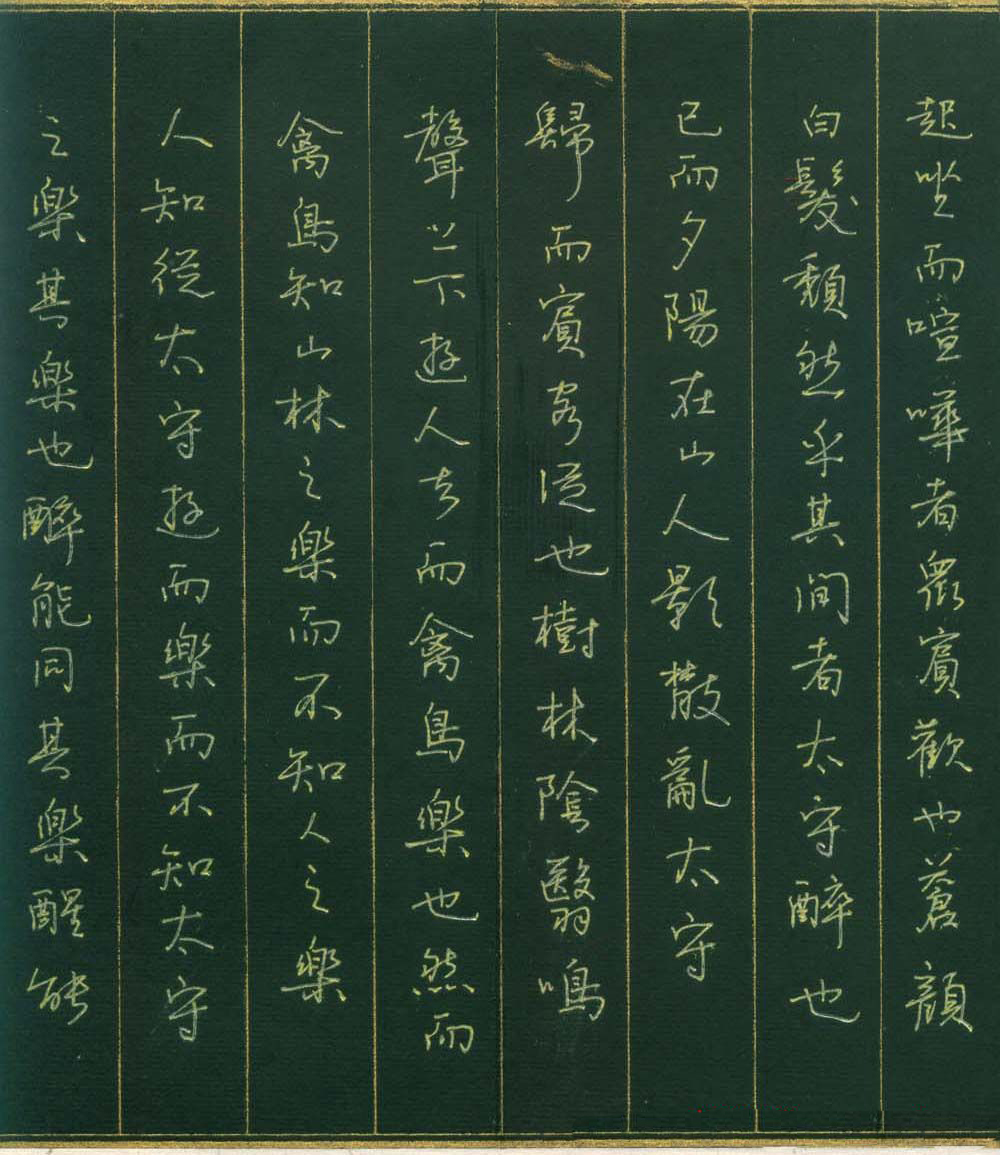 起坐而喧嘩者衆賓歡也蒼顏
白髮頹然乎其間者太守醉也
已而夕陽在山人影散亂太守
歸而賓客從也樹林陰翳鳴
聲上下遊人去而禽鳥樂也然而
禽鳥知山林之樂而不知人之樂
人知從太守遊而樂而不知太守
之樂其樂也醉能同其樂醒能